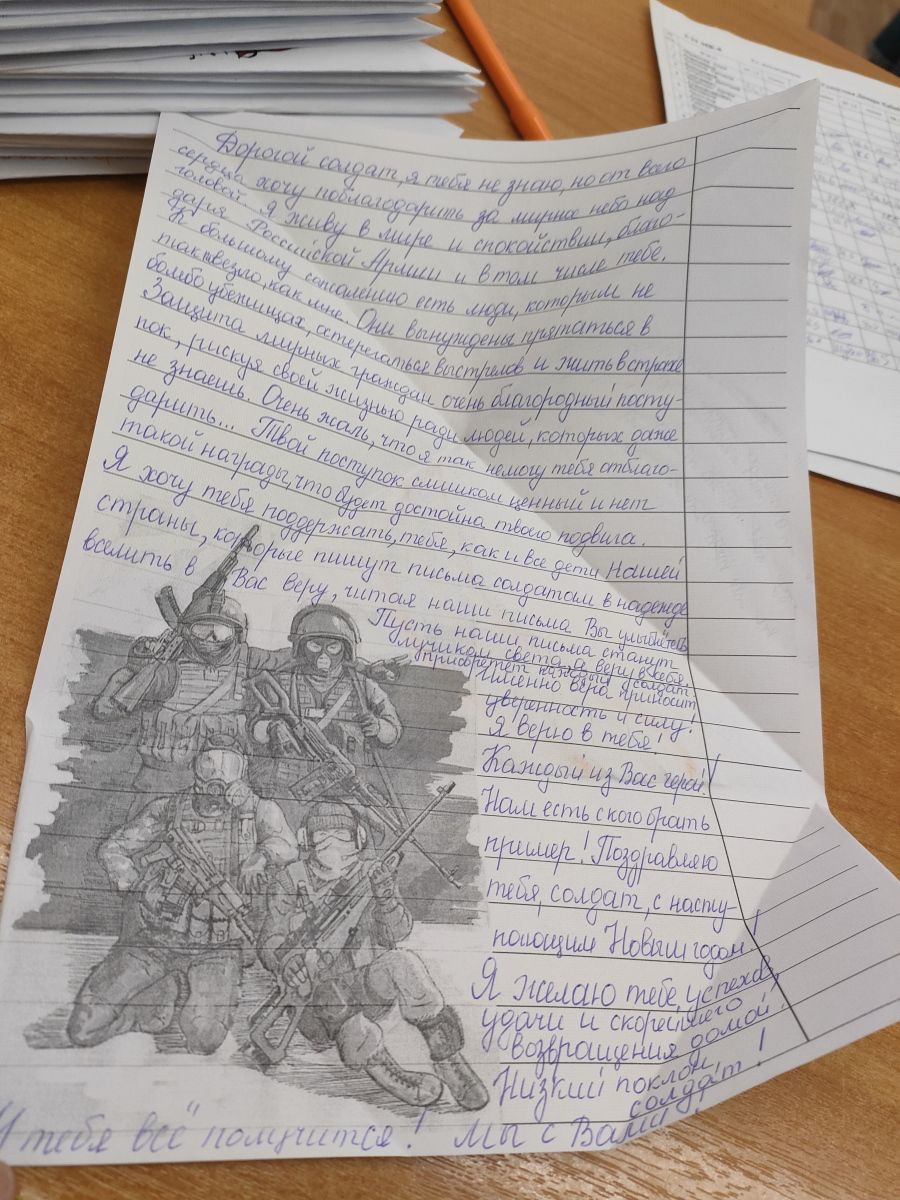 Дорогой солдат, я тебя не знаю, но от всего
сердца хочу поблагодарить за мирное небо над
головой. Я живу в мире и спокойствии, благо-
даря Российской Армии и в том числе тебе.
К большому сожалению есть люди, которым не
так везло, как мне. Они вынуждены прятаться в
бомбоубежищах, остерегаться выстрелов и жить в страхе
Защита мирных граждан очень благородный посту-
пок, рискуя своей жизнью ради людей, которых даже
не знаешь. Очень жаль, что я так немогу тебя отблаго-
дарить... Твой поступок слишком ценный и нет
такой награды, что будет достойна твоего подвига.
Я хочу тебя поддержать, тебя, как и все дети нашей
страны, которые пишут письма солдатам в надежде
вселить в Вас веру, читая наши письма Вы улыбнётесь
Пусть наши письма станут
лучиком света, а веру в себя
приобретёт каждый солдат
Именно вера приносит
уверенность и силу!
Я верю в тебя!
Каждый из Вас герой!
Нам есть с кого брать
пример! Поздравляю
тебя, солдат, с насту-
пающим Новым годом!
Я желаю тебе успехов,
удачи и скорейшего
возвращения домой.
Низкий поклон,
солдат!
У тебя всё получится! Мы с Вами!